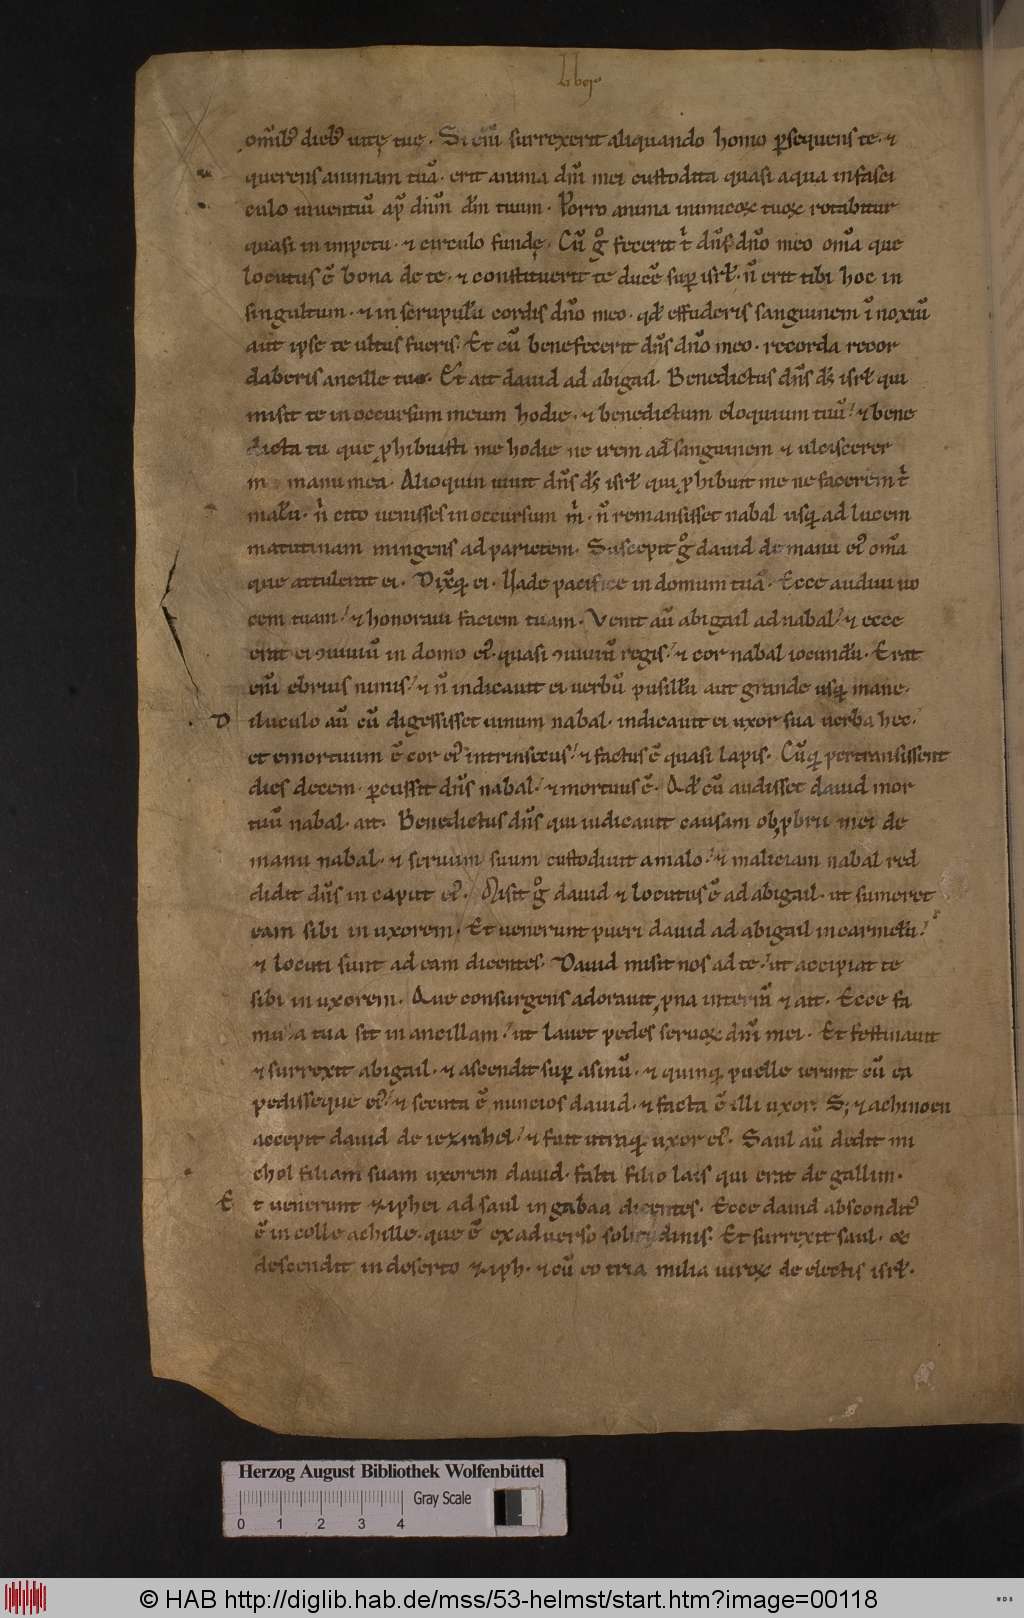 liber
om̅ib᷒ dieb᷒ uitę tuę. Si eni̅ surrexerit aliquando homo ꝑsequens te. ⁊
querens animam tua̅. erit anima dn̅i mei custodita quasi aqua in fasci
culo uiuentiu̅ ap᷒ diu̅m dn̅m tuum. Porro anima inimicoꝝ tuoꝝ rotabitur
quasi in impetu. ⁊ circulo fundę. Cu̅ gͦ fecerit t̉ dn̅s dn̅o meo om̅a que
locutus e̅ bona de te. ⁊ constituerit te duce̅ suꝑ isrl̅. n̅ erit tibi hoc in
singultum. ⁊ in scrupulu̅ cordis dn̅o meo. qd̅ effuderis sanguinem i̅noxiu̅
aut ipse te ultus fueris. Et cu̅ benefecerit dn̅s dn̅o meo. recorda recor
daberis ancille tue. Et ait dauid ad abigail. Benedictus dn̅s ds̅ isrl̅ qui
misit te in occursum meum hodie. ⁊ benedictum eloquium tuu̅. ⁊ bene
dicta tu que ꝓhibuisti me hodie ne irem ad sanguinem ⁊ ulciscerer
m manu mea. Alioquin uiuit dn̅s ds̅ isrl̅ qui ꝓhibuit me ne facerem t̉
malu̅. n̉ cito uenisses in occursum m̉. n̅ remansisset nabal usq; ad lucem
matutinam mingens ad parietem. Suscepit gͦ dauid de manu ei᷒ om̅a
que attulerat ei. Dixq; ei. Uade pacifice in domum tua̅. Ecce audiui uo
cem tuam. ⁊ honoraui faciem tuam. Uenit au̅ abigail ad nabal. ⁊ ecce
erat ei ꝯuiuiu̅ in domo ei᷒. quasi ꝯuiuiu̅ regis. ⁊ cor nabal iocundu̅. Erat
eni̅ ebrius nimis. ⁊ n̅ indicauit ei uerbu̅ pusillu̅ aut grande usq; mane.
D iluculo au̅ cu̅ digessisset uinum nabal. indicauit ei uxor sua uerba hec.
et emortuum e̅ cor ei᷒ intrinsecus. ⁊ factus e̅ quasi lapis. Cu̅q; pertransissent
dies decem. ꝑcussit dn̅s nabal. ⁊ mortuus e̅. Qd̅ cu̅ audisset dauid mor
tuu̅ nabal. ait. Benedictus dn̅s qui iudicauit causam obꝓbrii mei de
manu nabal. ⁊ seruum suum custodiuit a malo. ⁊ maliciam nabal red
didit dn̅s in caput ei᷒. Misit gͦ dauid ⁊ locutus e̅ ad abigail. ut sumeret
eam sibi in uxorem. Et uenerunt pueri dauid ad abigail in carmelu̅.
⁊ locuti sunt ad eam dicentes. Dauid misit nos ad te. ut accipiat te
sibi in uxorem. Que consurgens adorauit ꝓna in terra̅ ⁊ ait. Ecce fa
mula tua sit in ancillam. ut lauet pedes seruoꝝ dn̅i mei. Et festinauit
⁊ surrexit abigail. ⁊ ascendit suꝑ asinu̅. ⁊ quinq; puelle ierunt cu̅ ea
pedisseque ei᷒. ⁊ secuta e̅ nuncios dauid. ⁊ facta e̅ illi uxor. S; ⁊ achinoen
accepit dauid de iezrahel. ⁊ fuit utraq; uxor ei᷒. Saul au̅ dedit mi
chol filiam suam uxorem dauid. falti filio lais qui erat de gallim.
E t uenerunt ziphei ad saul in gabaa dicentes. Ecce dauid absconditᷣ
e̅ in colle achille. que e̅ ex aduerso solitudinis. Et surrexit saul. ⁊
descendit in deserto ziph. ⁊ cu̅ eo tria milia uiroꝝ de electis isrl̅.
Herzog August Bibliothek Wolfenbüttel
Gray Scale
0 1 2 3 4
© HAB http://diglib.hab.de/mss/53-helmst/start.htm?image=00118